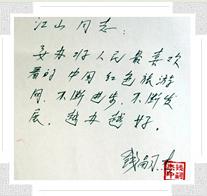 江山同志：
要办好人民最喜欢
看的中国红色旅游
网，不断进步，不断发
展，越办越好。